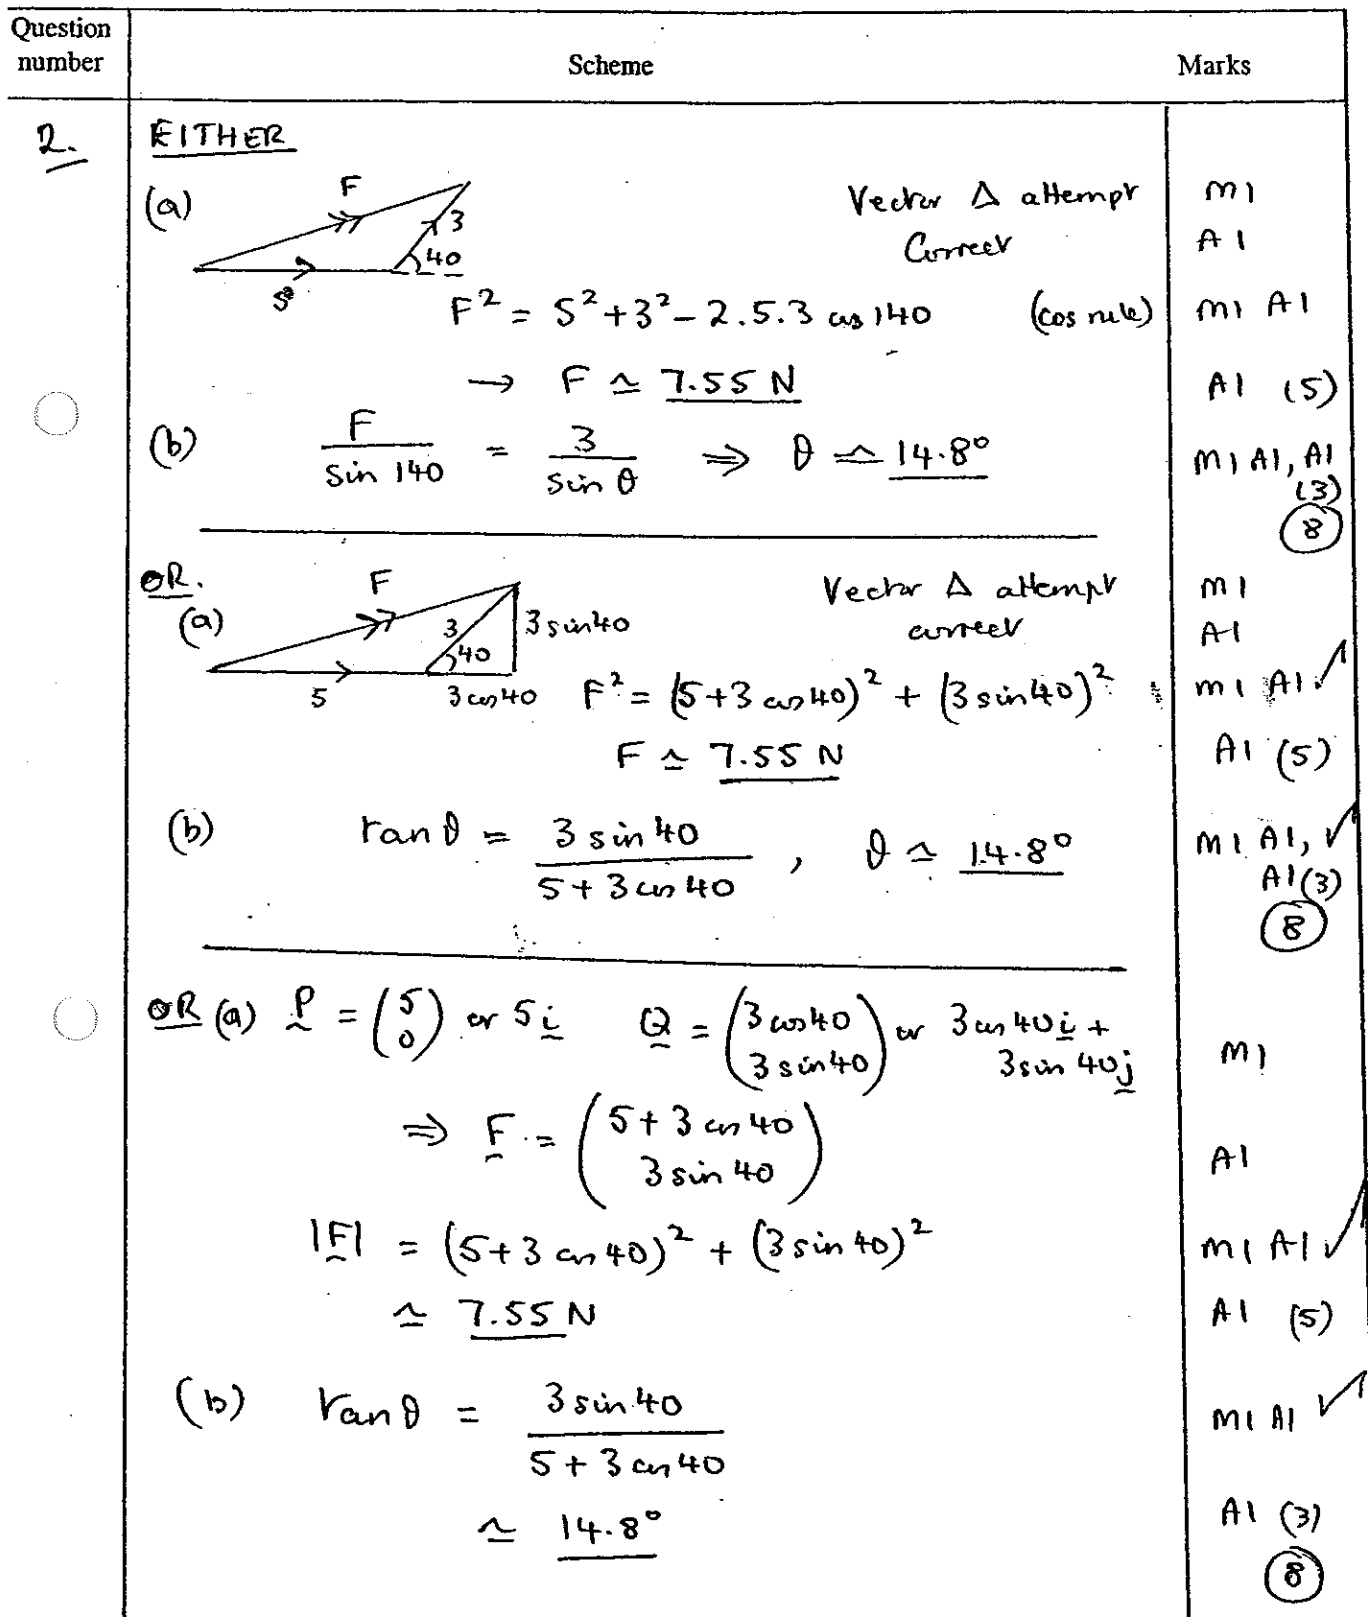 Question number Scheme Marks
2. EITHER
(a) F 3 40 5 Vector Δ attempt M1
Correct A1
F² = 5² + 3² - 2.5.3 cos 140 (cos rule) M1 A1
→ F ≃ 7.55 N A1 (5)
(b) F / sin 140 = 3 / sin θ ⇒ θ ≃ 14.8° M1 A1, A1 (3)
(8)
OR.
(a) F 3 40 3 sin 40 5 3 cos 40 Vector Δ attempt M1
correct A1
F² = (5+3 cos 40)² + (3 sin 40)² M1 A1 ✓
F ≃ 7.55 N A1 (5)
(b) tan θ = 3 sin 40 / 5 + 3 cos 40 , θ ≃ 14.8° M1 A1, ✓ A1 (3)
(8)
OR (a) P = (5 0) or 5i Q = (3 cos 40 3 sin 40) or 3 cos 40 i + 3 sin 40 j M1
⇒ F = (5 + 3 cos 40 3 sin 40) A1
|F| = (5+3 cos 40)² + (3 sin 40)² M1 A1 ✓
≃ 7.55 N A1 (5)
(b) tan θ = 3 sin 40 / 5 + 3 cos 40 M1 A1 ✓
≃ 14.8° A1 (3)
(8)